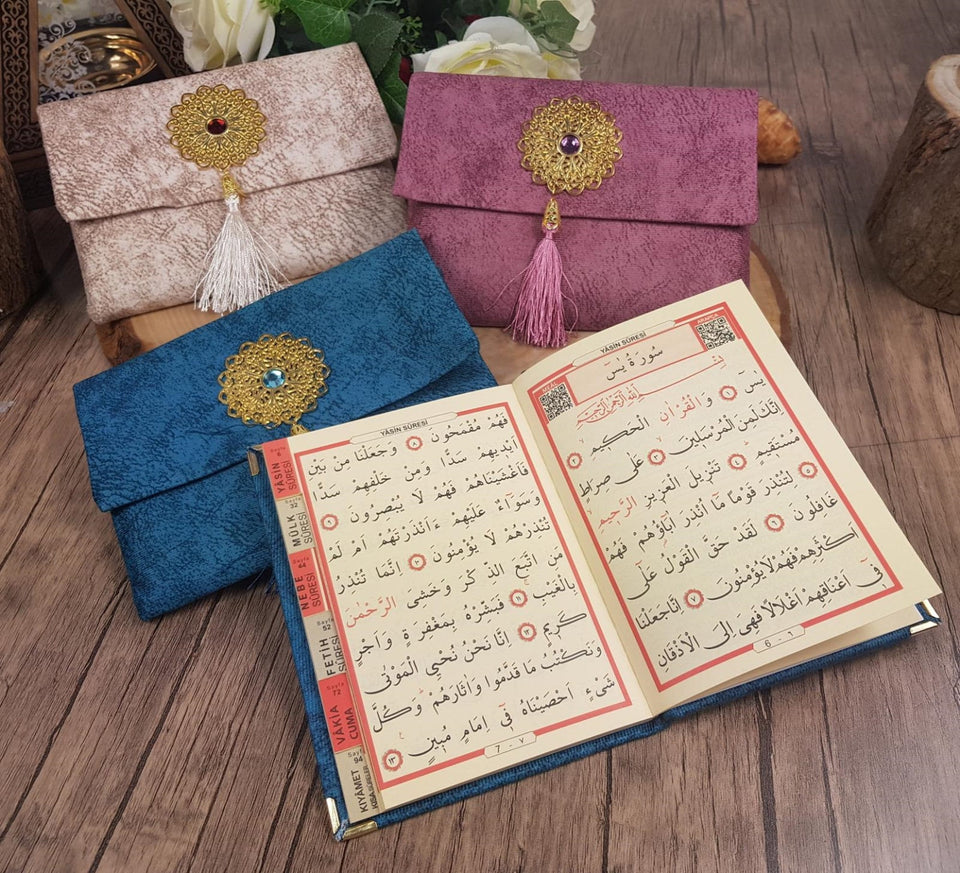 YÂSİN SÛRESİ
سُورَةُ يٰسٓ
بِسْمِ اللّٰهِ الرَّحْمٰنِ الرَّحِيمِ
يٰسٓ ١ وَالْقُرْاٰنِ الْحَكِيمِ ٢
اِنَّكَ لَمِنَ الْمُرْسَلِينَ ٣ عَلٰى صِرَاطٍ
مُسْتَقِيمٍ ٤ تَنْزِيلَ الْعَزِيزِ الرَّحِيمِ
٥ لِتُنْذِرَ قَوْمًا مَٓا اُنْذِرَ اٰبَٓاؤُهُمْ فَهُمْ
غَافِلُونَ ٦ لَقَدْ حَقَّ الْقَوْلُ عَلٰٓى
اَكْثَرِهِمْ فَهُمْ لَا يُؤْمِنُونَ ٧ اِنَّا جَعَلْنَا
فِٓي اَعْنَاقِهِمْ اَغْلَالًا فَهِيَ اِلَى الْاَذْقَانِ
6 - ٦
YÂSİN SÛRESİ
فَهُمْ مُقْمَحُونَ ٨ وَجَعَلْنَا مِنْ بَيْنِ
اَيْدِيهِمْ سَدًّا وَمِنْ خَلْفِهِمْ سَدًّا
فَاَغْشَيْنَاهُمْ فَهُمْ لَا يُبْصِرُونَ ٩
وَسَوَٓاءٌ عَلَيْهِمْ ءَاَنْذَرْتَهُمْ اَمْ لَمْ
تُنْذِرْهُمْ لَا يُؤْمِنُونَ ١٠ اِنَّمَا تُنْذِرُ
مَنِ اتَّبَعَ الذِّكْرَ وَخَشِيَ الرَّحْمٰنَ
بِالْغَيْبِ ١١ فَبَشِّرْهُ بِمَغْفِرَةٍ وَاَجْرٍ
كَرِيمٍ ١٢ اِنَّا نَحْنُ نُحْيِ الْمَوْتٰى
وَنَكْتُبُ مَا قَدَّمُوا وَاٰثَارَهُمْ وَكُلَّ
شَيْءٍ اَحْصَيْنَاهُ فِٓي اِمَامٍ مُبِينٍ ١٣
7 - ٧
Sayfa
6
YÂSİN
SÛRESİ
Sayfa
32
MÜLK
SÛRESİ
Sayfa
NEBE
SÛRESİ
Sayfa
52
FETİH
SÛRESİ
Sayfa
72
VÂKİA
CUMA
Sayfa
94
KIYÂMET
KISA SÛRELER